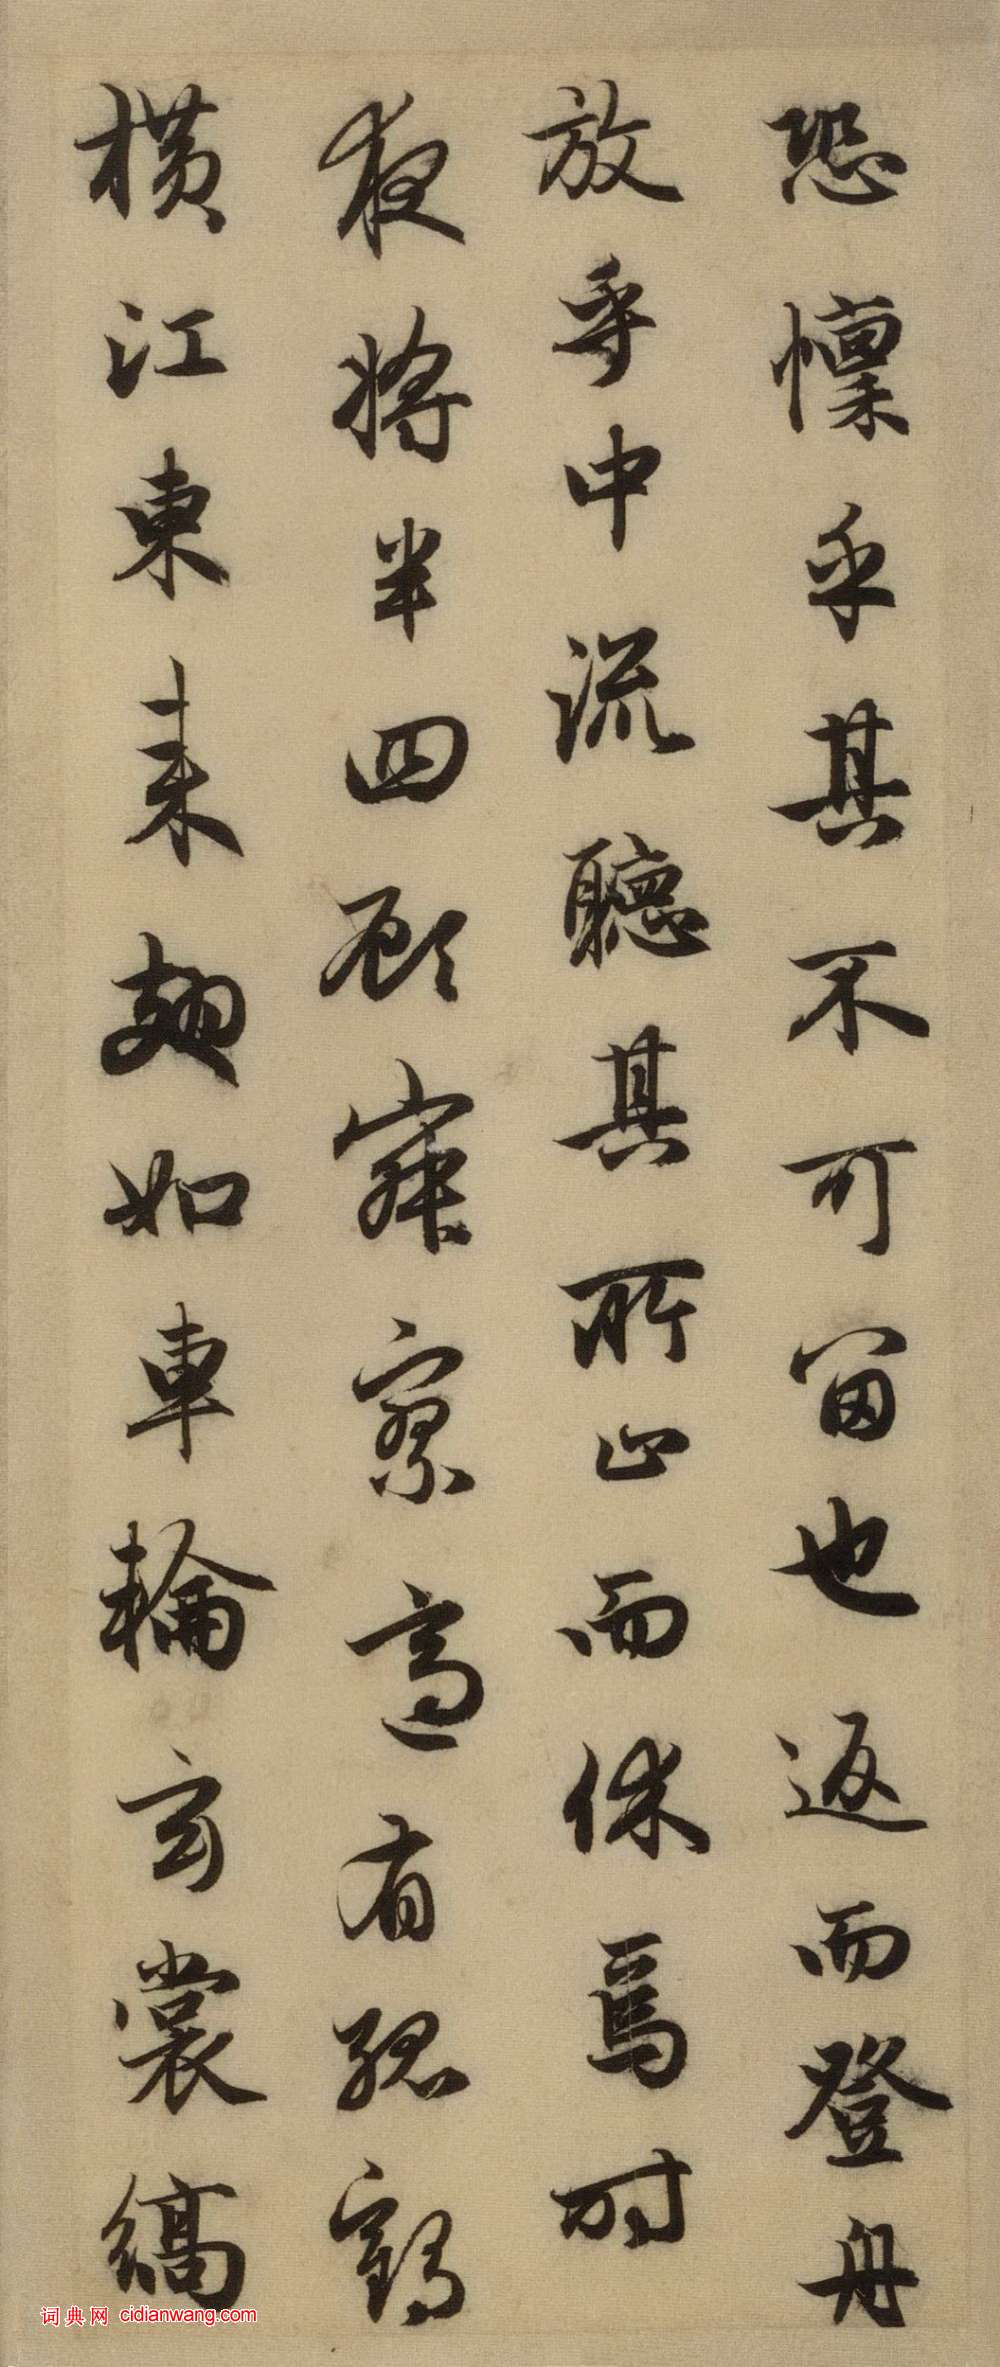 恐懍乎其不可留也返而登舟
放乎中流聽其所止而休焉時
夜將半四顧寂寥適有孤鶴
橫江東来翅如車輪玄裳縞
词典网 cidianwang.com